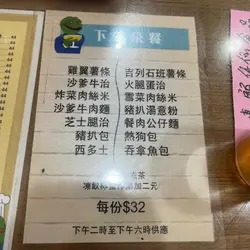 下午茶餐
雞翼薯條 吉列石班薯條
沙爹牛治 火腿蛋治
炸菜肉絲米 雪菜肉絲米
沙爹牛肉麵 豬扒湯意粉
芝士腿治 餐肉公仔麵
豬扒包 熱狗包
西多士 吞拿魚包
茶
凍飲加二元
每份$32
下午二時至下午六時供應